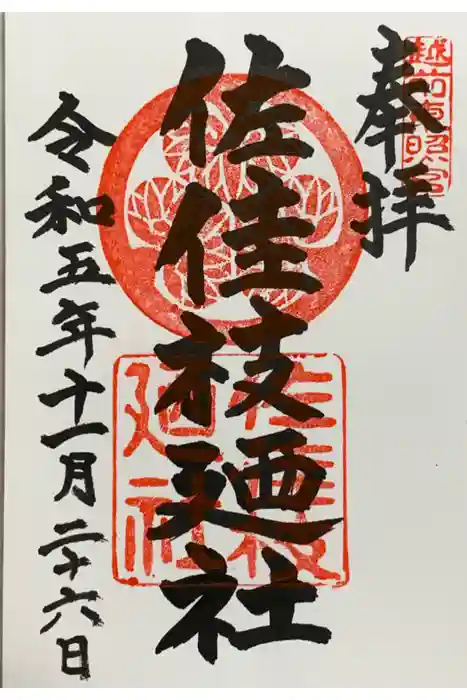 越前東照宮
奉拝
佐佳枝廼社
佐佳枝
廼社
令和五年十一月二十六日